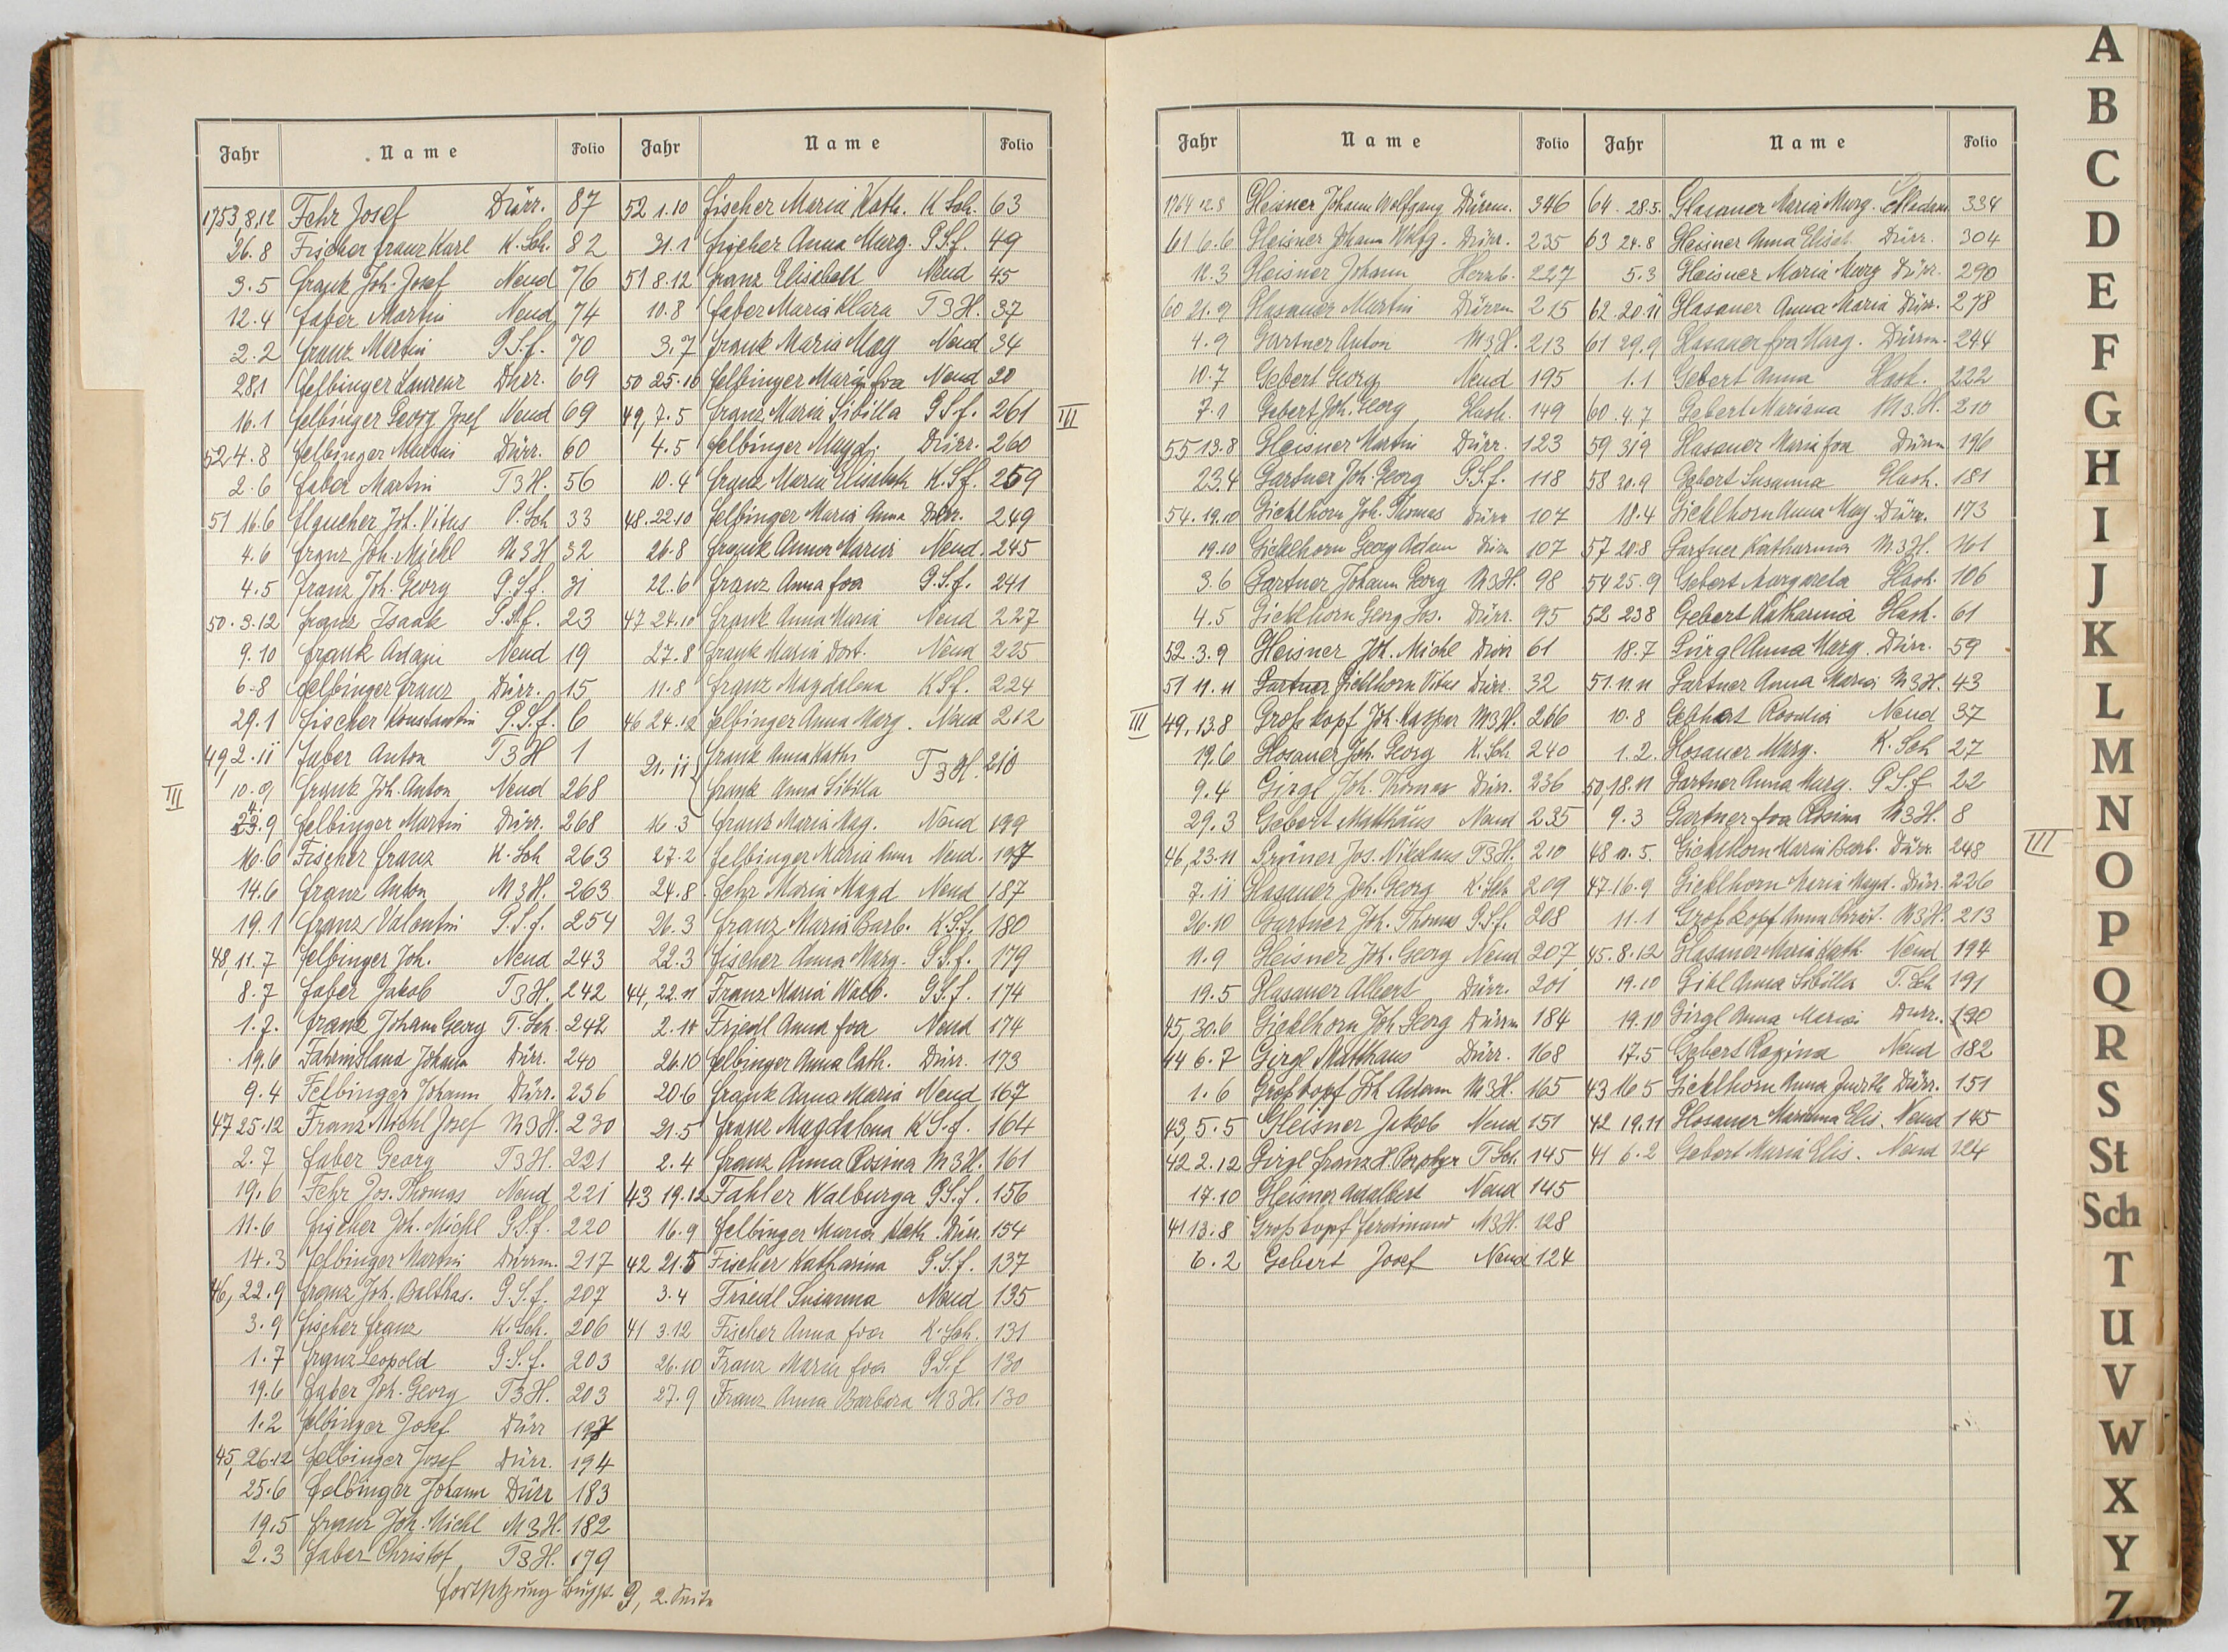 Jahr Name Folio Jahr Name Folio
1753,8,12 Fehr Josef Dürr. 87
26.8 Fischer Franz Karl K.Sch. 82
3.5 Frank Joh. Josef Neud 76
12.4 Faber Martin Neud 74
2.2 Franz Martin P.S.f. 70
28.1 Felbinger Laurenz Dürr. 69
16.1 Felbinger Georg Josef Neud 69
52 4.8 Felbinger Martin Dürr. 60
2.6 Faber Martin T3H. 56
51 16.6 Joh. Vitus P.Sch 33
4.6 Franz Joh. Michl M3H 32
4.5 Franz Joh. Georg P.S.f. 31
50.3.12 Franz Isaak P.S.f. 23
9.10 Frank Adam Neud 19
6.8 Felbinger Franz Dürr. 15
29.1 Fischer Konstantin P.S.f. 6
49,2.11 Faber Anton T3H 1
III
10.9 Frank Joh. Anton Neud 268
.9 Felbinger Martin Dürr. 268
10.6 Fischer Franz K.Sch 263
14.6 Franz Anton M3H. 263
19.1 Franz Valentin P.S.f. 254
48,11.7 Felbinger Joh. Neud 243
8.7 Faber Jakob T3H. 242
1.7. Franz Johann Georg T.Sch. 242
19.6 Johann Dürr. 240
9.4 Felbinger Johann Dürr. 236
47 25.12 Franz Michl Josef M3H. 230
2.7 Faber Georg T3H. 221
19.6 Fehr Jos. Thomas Neud 221
11.6 Fischer Joh. Michl P.S.f. 220
14.3 Felbinger Martin Dürrm. 217
46,22.9 Franz Joh. Balthas. P.S.f. 207
3.9 Fischer Franz K.Sch. 206
1.7 Franz Leopold P.S.f. 203
19.6 Faber Joh. Georg T3H. 203
1.2 Felbinger Josef Dürr 197
45,26.12 Felbinger Josef Dürr. 194
25.6 Felbinger Johann Dürr 183
19.5 Franz Joh. Michl M3H. 182
2.3 Faber Christof T3H. 179
52 1.10 Fischer Maria Kath. K Sch. 63
31.1 Fischer Anna Marg. P.S.f. 49
51 8.12 Franz Elisabeth Neud 45
10.8 Faber Maria Klara T3H. 37
3.7 Frank Maria Mag Neud 34
50 25.10 Felbinger Maria Eva Neud 20
49,7.5 Franz Maria Sibilla P.S.f. 261
4.5 Felbinger Magd. Dürr. 260
10.4 Franz Maria Elisabeth K.S.f. 259
48.22.10 Felbinger Maria Anna Dürr. 249
26.8 Frank Anna Maria Neud. 245
22.6 Franz Anna Eva P.S.f. 241
47 24.10 Frank Anna Maria Neud 227
27.8 Frank Maria Dort. Neud 225
11.8 Franz Magdalena K.S.f. 224
46 24.12 Felbinger Anna Marg. Neud 212
21.11 Frank Anna Kath.
Frank Anna Sibilla T3H. 210
16.3 Franz Maria Mag. Neud 199
27.2 Felbinger Maria Anna Neud. 197
24.8 Fehr Maria Magd Neud 187
26.3 Franz Maria Barb. K.S.f. 180
22.3 Fischer Anna Marg. P.S.f. 179
44,22.11 Franz Maria Walb. P.S.f. 174
2.10 Friedl Anna Eva Neud 174
26.10 Felbinger Anna Cath. Dürr. 173
20.6 Frank Anna Maria Neud 167
21.5 Franz Magdalena K.S.f. 164
2.4 Franz Anna Rosina M3H. 161
43 19.12 Fahler Walburga P.S.f. 156
16.9 Felbinger Maria Kath. Dürr. 154
42 21.5 Fischer Katharina P.S.f. 137
3.4 Friedl Susanna Neud 135
41 3.12 Fischer Anna Eva K.Sch. 131
26.10 Franz Maria Eva P.S.f 130
27.9 Franz Anna Barbara M3H. 130
Fortsetzung Buchst. P, 2. Seite
Jahr Name Folio Jahr Name Folio
1764 12.8 Gleisner Johann Wolfgang Dürrm. 346
61.6.6 Gleisner Johann Wolfg. Dürr. 235
12.3 Gleisner Johann 227
60 21.9 Glasauer Martin Dürrm 215
4.9 Gartner Anton M3H. 213
10.7 Gebert Georg Neud 195
III
7.1 Gebert Joh. Georg Hash. 149
55 13.8 Gleisner Martin Dürr. 123
23.4 Gartner Joh. Georg P.S.f. 118
54.19.10 Gicklhorn Joh. Thomas Dürr 107
19.10 Gicklhorn Georg Adam Dürr 107
3.6 Gartner Johann Georg M3H. 98
4.5 Gicklhorn Georg Jos. Dürr. 95
52.3.9 Gleisner Joh. Michl Dürr 61
51 11.11 Gartner Gicklhorn Vitus Dürr. 32
III
49,13.8 Großkopf Joh. Kaspar M3H. 266
19.6 Glosauer Joh. Georg K.Sch 240
9.4 Girgl Joh. Thomas Dürr. 236
29.3 Gebert Matthäus Neud 235
46,23.11 Jos. Nikolaus T3H. 210
7.11 Glasauer Joh. Georg K.Sch 209
26.10 Gartner Joh. Thomas P.S.f. 208
11.9 Gleisner Joh. Georg Neud 207
19.5 Glasauer Albert Dürr. 201
45,30.6 Gicklhorn Joh Georg Dürrm 184
44 6.7 Girgl Matthäus Dürr. 168
1.6 Großkopf Joh Adam M3H. 165
43,5.5 Gleisner Jakob Neud 151
42 2.12 Girgl Franz T Sch 145
17.10 Gleisner Adalbert Neud 145
41 13.8 Großkopf Ferdinand M3H. 128
6.2 Gebert Josef Neud 124
64.28.5. Glasauer Maria Marg. 334
63 24.8 Gleisner Anna Elisab. Dürr. 304
5.3 Gleisner Maria Marg Dürr. 290
62.20.11 Glasauer Anna Maria Dürr. 278
61 29.9 Glasauer Eva Marg. Dürrm. 244
1.1 Gebert Anna Hash. 222
60.4.7 Gebert Mariana M3H. 210
59 31.9 Glasauer Maria Eva Dürrm 196
58 20.9 Gebert Susanna Hash. 181
18.4 Gicklhorn Anna Mag. Dürr. 173
57 20.8 Gartner Katharina M3H. 161
54 25.9 Gebert Margareta Hash. 106
52 23.8 Gebert Katharina Hash. 61
18.7 Gürgl Anna Marg. Dürr. 59
51.11.11 Gartner Anna Maria M3H. 43
10.8 Gebhart Rosalia Neud 37
1.2. Glosauer Marg. K.Sch 27
50,18.11 Gartner Anna Marg. P.S.f 22
9.3 Gartner Eva Rosina M3H. 8
III
48 11.5. Gicklhorn Maria Barb. Dürr. 248
47.16.9 Gicklhorn Maria Magd. Dürr. 226
11.1 Großkopf Anna Christ. M3H. 213
45.8.12 Glasauer Maria Kath Neud 194
19.10 Gibl Anna Sibilla T.Sch 191
19.10 Girgl Anna Maria Dürr. 190
17.5 Gebert Regina Neud 182
43 16.5 Gicklhorn Anna Judith Dürr. 151
42 19.11 Glosauer Marianna Elis. Neud 145
41 6.2 Gebert Maria Elis. Neud 124
A
B
C
D
E
F
G
H
I
J
K
L
M
N
O
P
Q
R
S
St
Sch
T
U
V
W
X
Y
Z